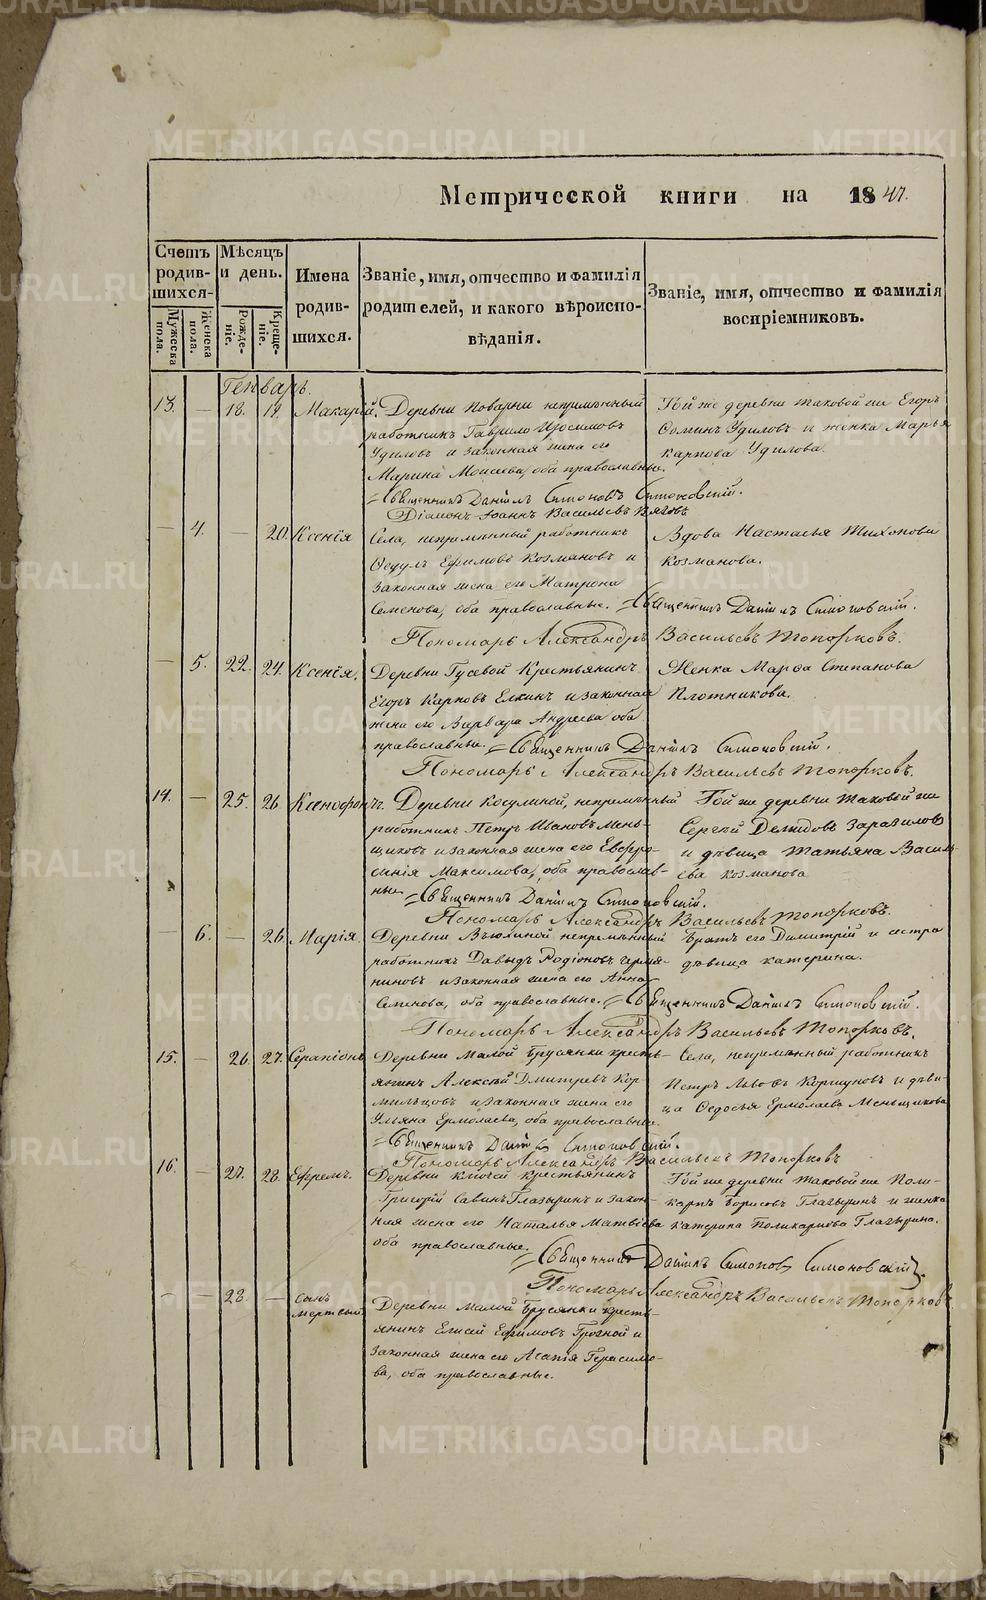 METRIKI.GASO-URAL.RU
Метрической книги на 1847.
Счетъ родив-шихся.
Мужеска пола.
Женска пола.
Мѣсяцъ и день.
Рожде-ніе.
Креще-ніе.
Имена родив-шихся.
Званіе, имя, отчество и фамилія родителей, и какого вѣроиспо-вѣданія.
Званіе, имя, отчество и фамилія воспріемниковъ.
Генварь.
13. — 18. 19. Макарій.
Деревни Поварни непремѣнный
работникъ Гаврило Изосимовъ
Удиловъ и законная жена его
Марина Моисеева, оба православные.
Той же деревни таковой же Егоръ
Фоминъ Удиловъ и женка Марья
Карпова Удилова.
Священникъ Даніилъ Симоновъ Симоновскій.
Діаконъ Іоаннъ Васильевъ
— 4. — 20. Ксенія
Села, непремѣнный работникъ
Федулъ Ефимовъ Козмановъ и
законная жена его Матрона
Семенова, оба православные.
Вдова Настасья Тихонова
Козманова.
Священникъ Даніилъ Симоновскій.
Пономарь Александръ Васильевъ Топорковъ.
— 5. 22. 24. Ксенія.
Деревни Гусевой Крестьянинъ
Егоръ Карповъ Елкинъ и законная
жена его Варвара Андреева оба
православные.
Женка Марфа Степанова
Плотникова.
Священникъ Даніилъ Симоновскій.
Пономарь Александръ Васильевъ Топорковъ.
14. — 25. 26. Ксенофонтъ.
Деревни Косулиной, непремѣнный
работникъ Петръ Ивановъ Мень-
щиковъ и законная жена его Евфро-
синія Максимова, оба православ-
ные
Той же деревни таковой же
Сергѣй Демидовъ Заразиловъ
и дѣвица Татьяна Василь-
ева Козманова
Священникъ Даніилъ Симоновскій.
Пономарь Александръ Васильевъ Топорковъ.
— 6. — 26. Марія.
Деревни Вьюхиной непремѣнный
работникъ Давыдъ Родіоновъ
и законная жена его Анна
Семенова, оба православные.
Братъ его Димитрій и сестра
дѣвица Катерина.
Священникъ Даніилъ Симоновскій.
Пономарь Александръ Васильевъ Топорковъ.
15. — 26. 27. Серапіонъ
Деревни Малой Брусянки кресть-
янинъ Алексѣй Дмитревъ Кор-
мильцовъ и законная жена его
Ульяна Ермолаева, оба православные.
Села, непремѣнный работникъ
Петръ Львовъ Коршуновъ и дѣви-
ца Федосья Ермолаева Меньщикова
Священникъ Даніилъ Симоновскій.
Пономарь Александръ Васильевъ Топорковъ
16. — 27. 28. Ефремъ.
Деревни Ключей крестьянинъ
Григорій Савинъ Глазыринъ и закон-
ная жена его Наталья Матвіева
оба православные.
Той же деревни таковой же Поли-
карпъ Борисовъ Глазыринъ и женка
Катерина Поликарпова Глазырина.
Священникъ Даніилъ Симоновъ Симоновскій.
Пономарь Александръ Васильевъ Топорковъ
— 28. — сынъ
мертвый
Деревни Малой Брусянки кресть-
янинъ Елисей Ефимовъ Грозной и
законная жена его Агапія Герасимо-
ва, оба православные.